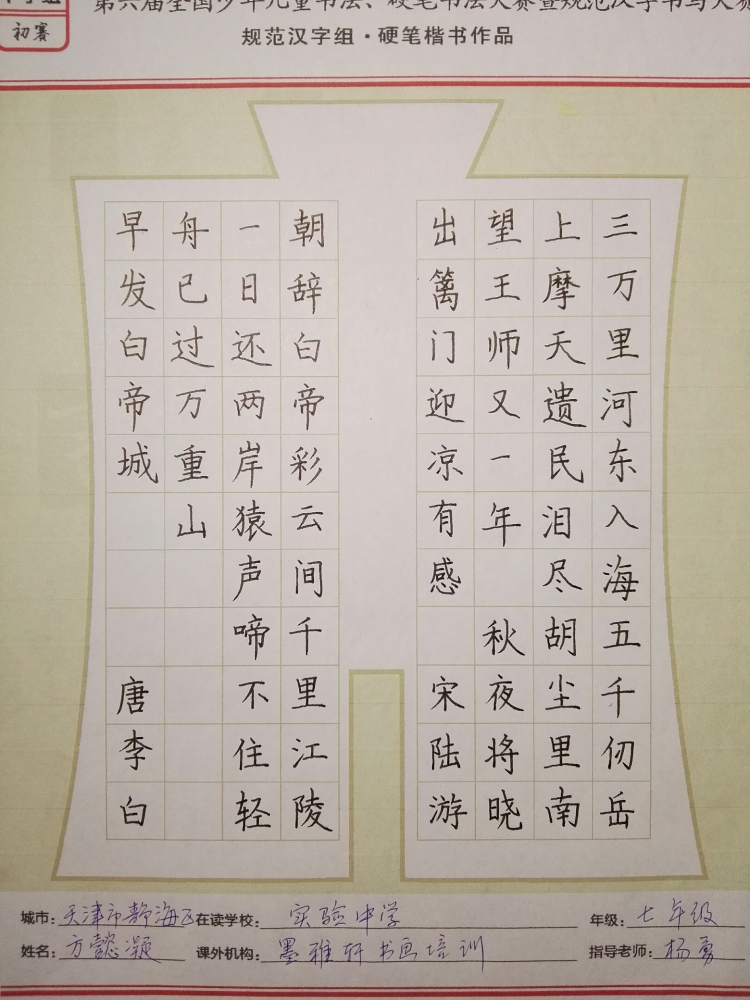 初赛
第六届全国少年儿童书法、硬笔书法大赛暨规范汉字书写大赛
规范汉字组·硬笔楷书作品
三万里河东入海五千仞岳
上摩天遗民泪尽胡尘里南
望王师又一年 秋夜将晓
出篱门迎凉有感 宋陆游
朝辞白帝彩云间千里江陵
一日还两岸猿声啼不住轻
舟已过万重山
早发白帝城 唐李白
城市:天津市静海区 在读学校:实验中学 年级:七年级
姓名:方懿凝 课外机构:墨雅轩书画培训 指导老师:杨勇